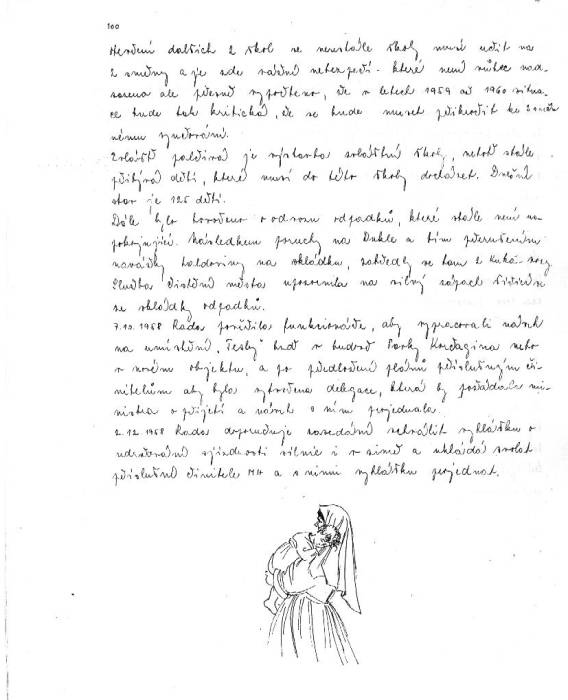 100
Otevření dalších 2 škol se neustále školy musí učit na
2 směny a je zde vážné nebezpečí - které není vůbec nad-
sazeno ale přesně vypočteno, že v letech 1959 až 1960 situa-
ce bude tak kritická, že se bude muset přikročit ke 3 směn
nému vyučování.
Zvláště palčivá je výstavba zvláštní školy, neboť stále
přibývá dětí, které musí do této školy docházet. Dnešní
stav je 125 dětí.
Dále bylo hovořeno o odvozu odpadků, které stále není us-
pokojující. Následkem poruchy na Dukle a tím přerušením
navážky haldoviny na skládku, zahořely se tam 2 Kuka-vozy
Služba čistění města upozornila na silný zápach šířící se
se skládky odpadků.
7.10.1958 Rada pověřila funkcionáře, aby vypracovali návrh
na umístění "Tesly" buď v budově Parky Korčagina nebo
v novém objektu, a po předložení plánů příslušným či-
nitelům aby byla vytvořena delegace, která by požádala mi-
nistra o přijetí a návrh s ním projednala.
2.12.1958 Rada doporučuje zasedání schválit vyhlášku o
udržování sjízdnosti silnic i v zimě a ukládá svolat
příslušné činitele MH a s nimi vyhlášku projednat.